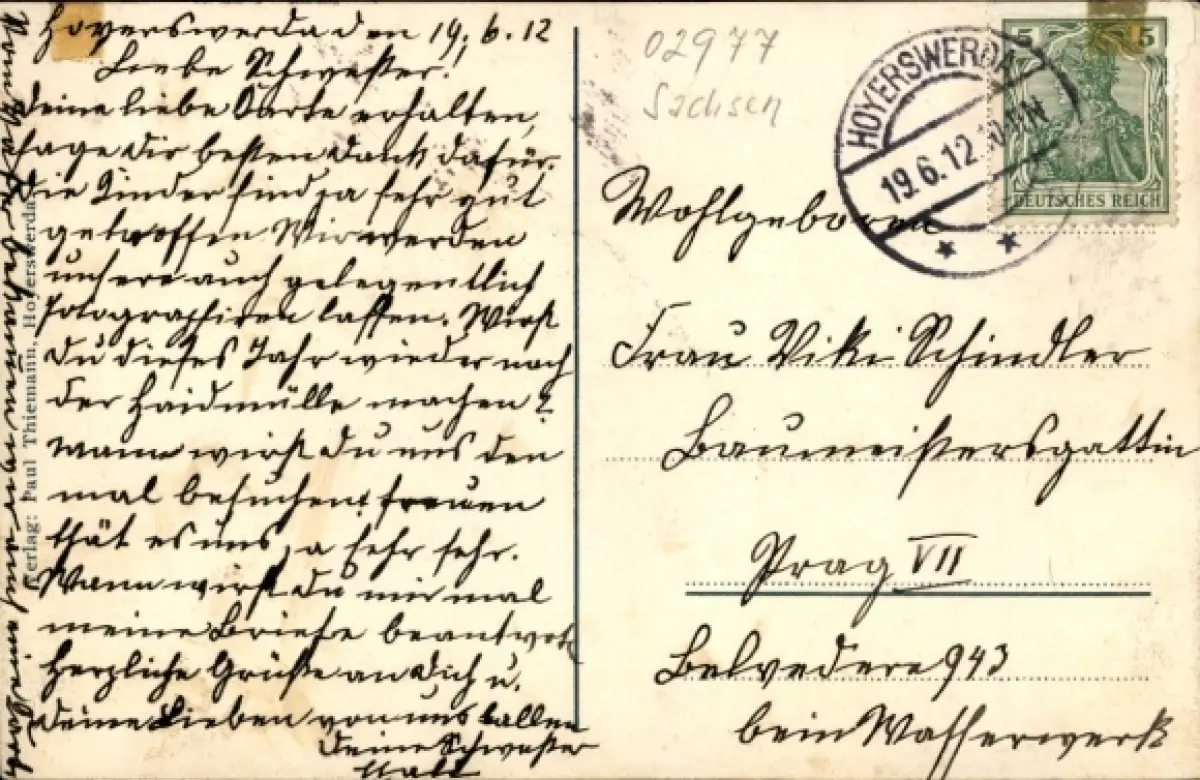 Hoyerswerda den 19.6.12
Liebe Schwester!
Deine liebe Carte erhalten,
sage dir besten Dank dafür.
Die Kinder sind ja sehr gut
getroffen Wir werden
unsere auch gelegentlich
Potographiren lassen. Wirst
du dieses Jahr wieder nach
der Haidmülle machen?
wann wirst du uns den
mal besuchen! freuen
thät es uns ja sehr sehr.
Wann wirst du mir mal
meine Briefe beantwort
Herzliche Grüße an Dich u.
deine Lieben von uns allen
Deine Schwester
Verlag: Paul Thiemann, Hoyerswerda
02977
Sachsen
HOYERSWERDA
19.6.12
5 5
DEUTSCHES REICH
Wohlgeboren
Frau Viki Schindler
Baumeistersgattin
Prag VII
Belvedere 943
beim Wasserwerk